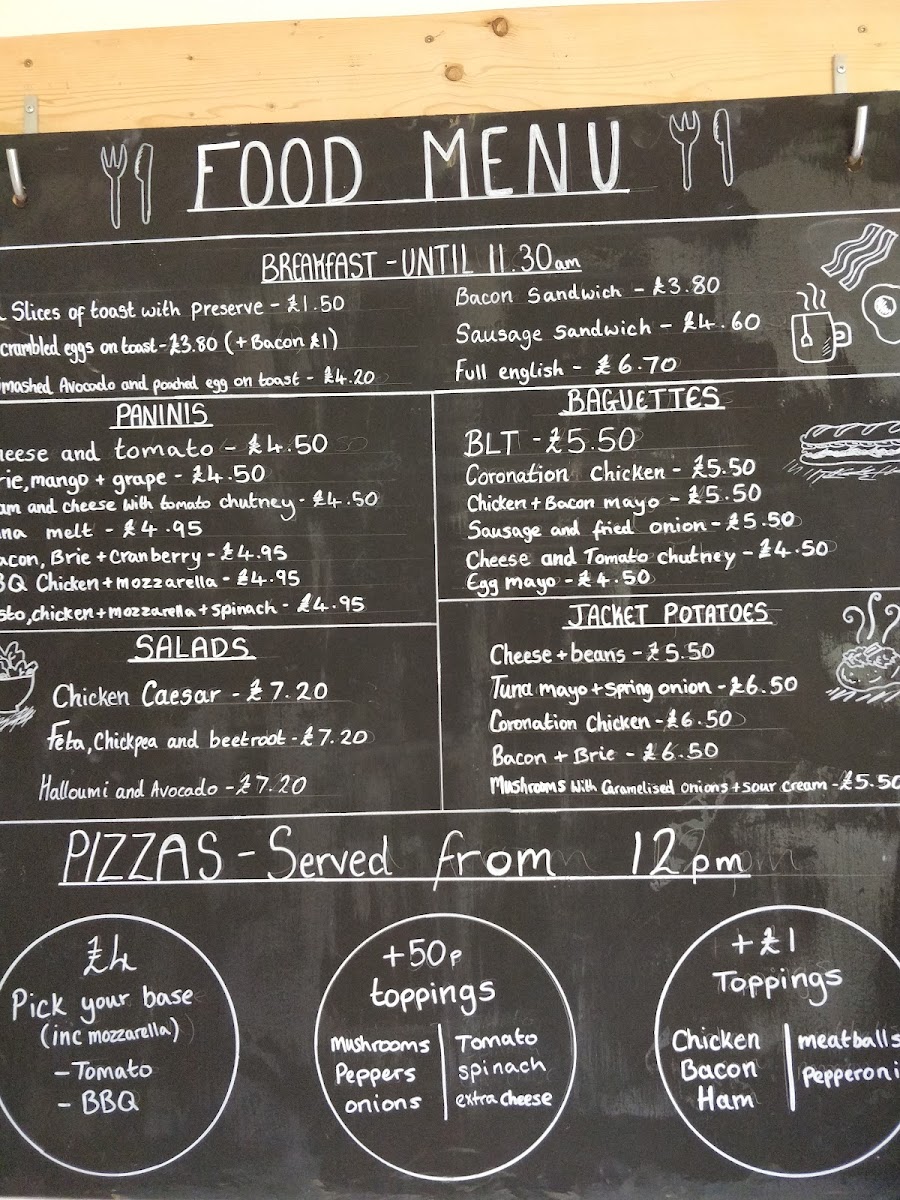 FOOD MENU
BREAKFAST - UNTIL 11.30am
Slices of toast with preserve - £1.50
crambled eggs on toast - £3.80 (+ Bacon £1)
mashed Avocado and poached egg on toast - £4.20
Bacon Sandwich - £3.80
Sausage sandwich - £4.60
Full english - £6.70
PANINIS
heese and tomato - £4.50
rie, mango + grape - £4.50
am and cheese with tomato chutney - £4.50
na melt - £4.95
acon, Brie + Cranberry - £4.95
BQ Chicken + mozzarella - £4.95
sto, chicken + mozzarella + spinach - £4.95
SALADS
Chicken Caesar - £7.20
Feta, Chickpea and beetroot - £7.20
Halloumi and Avocado - £7.20
BAGUETTES
BLT - £5.50
Coronation Chicken - £5.50
Chicken + Bacon mayo - £5.50
Sausage and fried onion - £5.50
Cheese and Tomato chutney - £4.50
Egg mayo - £4.50
JACKET POTATOES
Cheese + beans - £5.50
Tuna mayo + spring onion - £6.50
Coronation Chicken - £6.50
Bacon + Brie - £6.50
Mushrooms with Caramelised onions + sour cream - £5.50
PIZZAS - Served from 12pm
£4
Pick your base
(inc mozzarella)
- Tomato
- BBQ
+50p
toppings
Mushrooms
Peppers
onions
Tomato
spinach
extra cheese
+ £1
Toppings
Chicken
Bacon
Ham
meatballs
Pepperoni